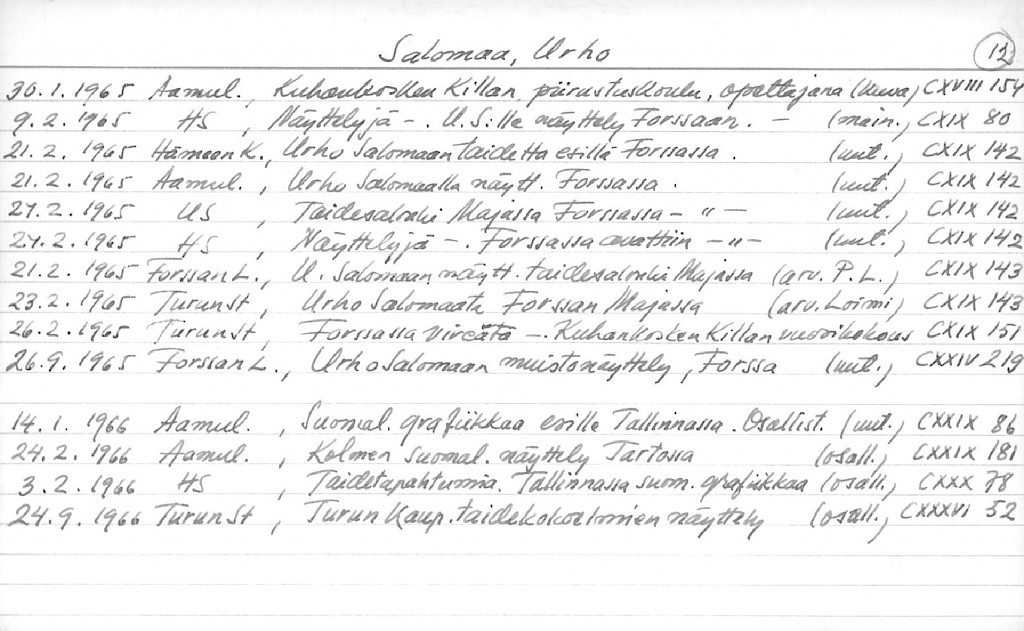 Salomaa, Urho
12
30.1.1965 Aamul., Kuhankosken Killan piirustuskoulu, opettajana (kuva) CXVIII 154
9.2.1965 HS, Näyttelyjä -. U.S:lle näyttely Forssaan. - (main.) CXIX 80
21.2.1965 Hämeen K., Urho Salomaan taidetta esillä Forssassa. (uut.) CXIX 142
21.2.1965 Aamul., Urho Salomaalla näytt. Forssassa. (uut.) CXIX 142
27.2.1965 US, Taidesalonki Majassa Forssassa - " - (uut.) CXIX 142
27.2.1965 HS, Näyttelyjä -. Forssassa avattiin - " - (uut.) CXIX 142
21.2.1965 Forssan L., U. Salomaan näytt. taidesalonki Majassa (arv. P.L.) CXIX 143
23.2.1965 TurunSt, Urho Salomaata Forssan Majassa (arv. Loimi) CXIX 143
26.2.1965 TurunSt, Forssassa vireätä -. Kuhankosken Killan vuosikokous CXIX 151
26.9.1965 Forssan L., Urho Salomaan muistonäyttely, Forssa (uut.) CXXIV 219
14.1.1966 Aamul., Suomal. grafiikkaa esille Tallinnassa. Osallist. (uut.) CXXIX 86
24.2.1966 Aamul., Kolmen suomal. näyttely Tartossa (osall.) CXXIX 181
3.2.1966 HS, Taidetapahtumia. Tallinnassa suom. grafiikkaa (osall.) CXXX 78
24.9.1966 TurunSt, Turun Kaup. taidekokoelmien näyttely (osall.) CXXXVI 52